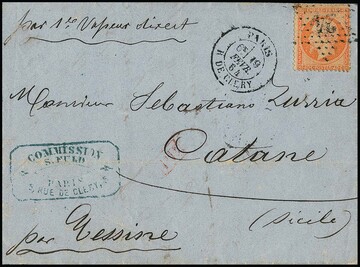 par 1er Vapeur direct
PARIS
19
FEVR.
64
R. DE CLERY
24
Monsieur Sebastiano Zurria
Catane
COMMISSION
S. FULD
PARIS
RUE DE CLERY
(Sicile)
par Messine